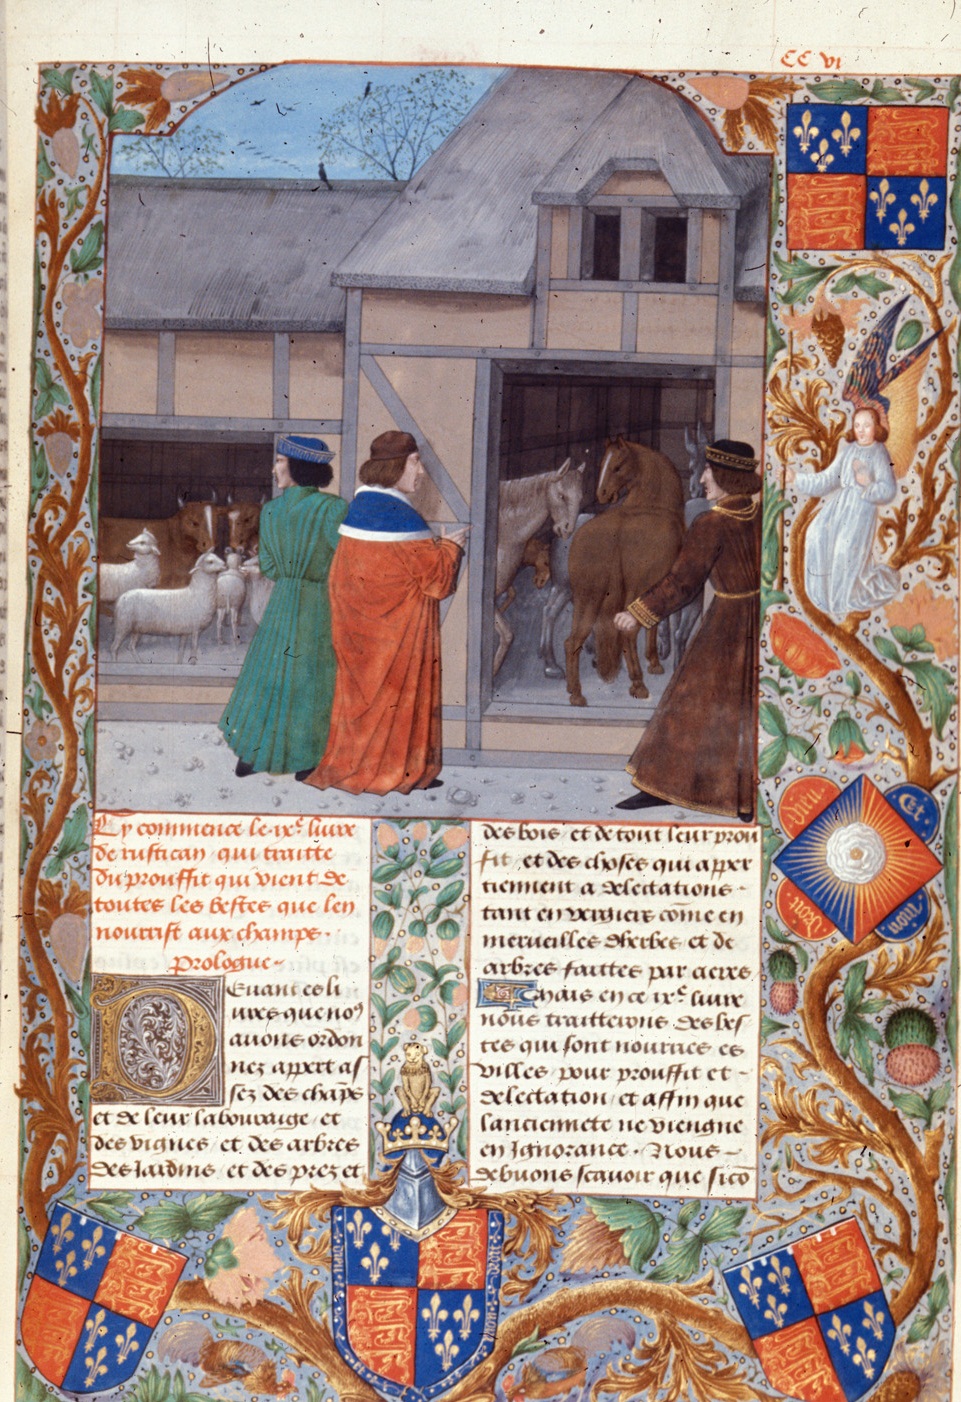 CC vi
Cy commence le ixe. livre
de rustican qui traitte
du prouffit qui vient de
toutes les bestes que len
nourrist aux champs.
Prologue.
Devant es li
vres que no9
avons ordon
nez appert as
sez des chaps
et de leur labourage et
des vignes et des arbres
des Jardins et des prez et
des bois et de tout leur prou
fit et des choses qui apper
tiennent a delectations.
tant en vergiers come en
merveilles dherbes et de
arbres faittes par acres
Mais en ce ixe. livre
nous traitterons des bes
tes qui sont nourries es
villes pour prouffit et
delectation et affin que
lanciennete ne viengne
en Ignorance. Nous
debuons scavoir que sico
Dieu
Et
mon
Droit